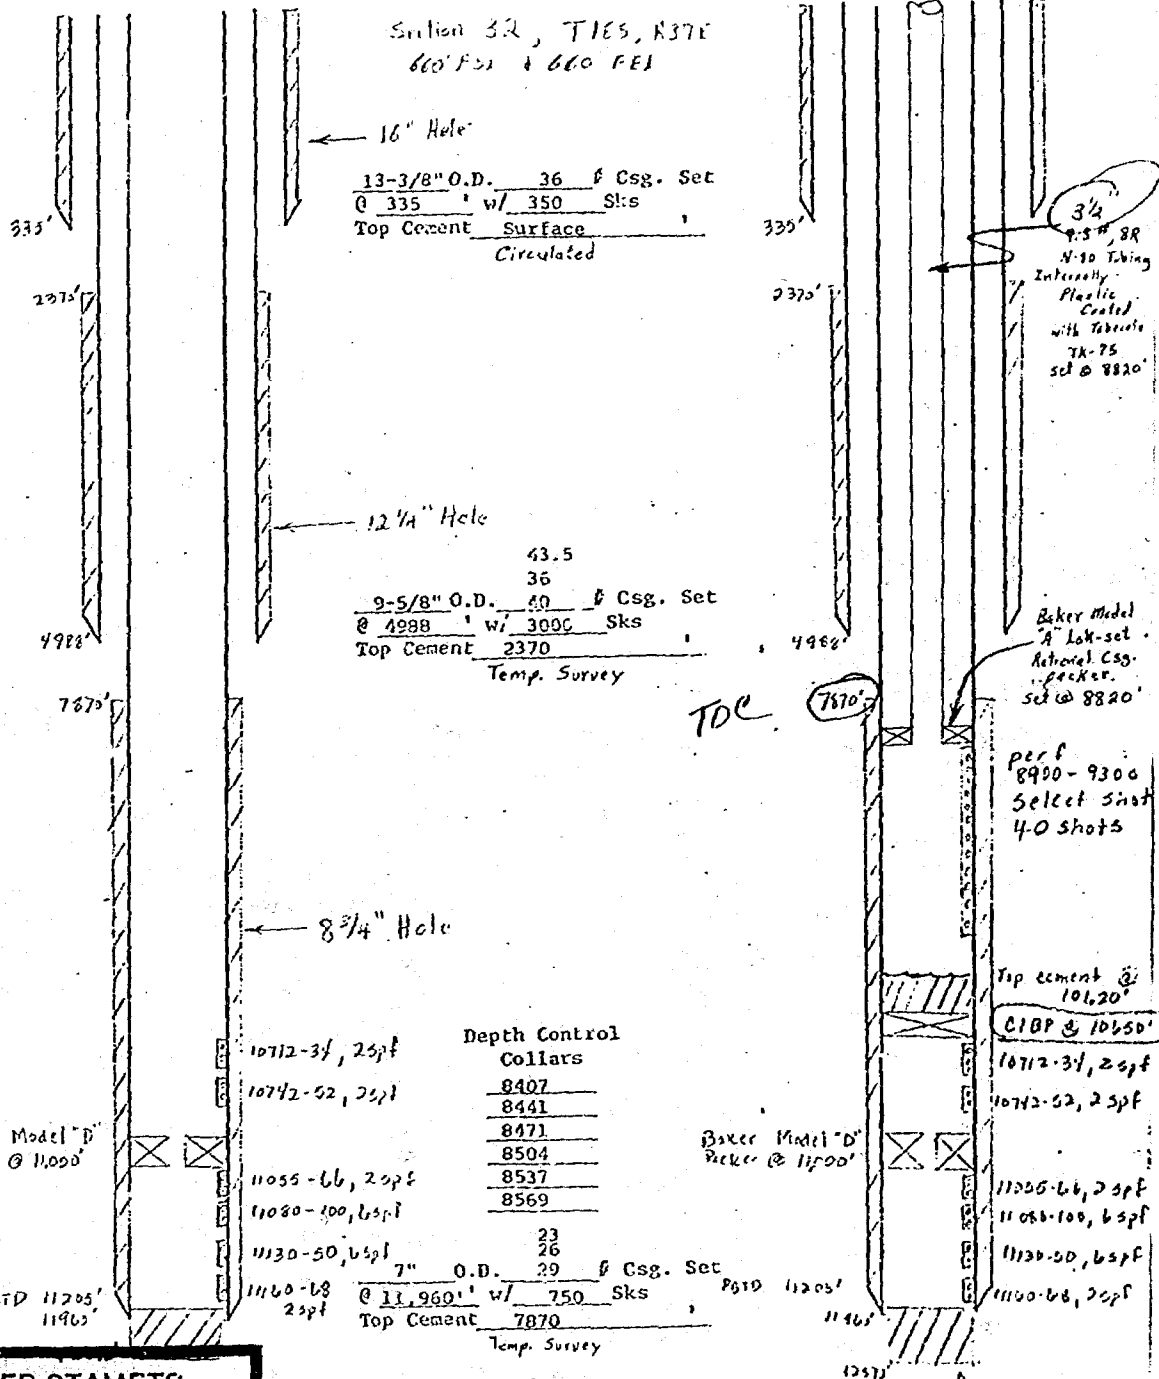 Section 32, T16S, R37E
660' FSL & 660 FEL
16" Hole
13-3/8" O.D. 36 # Csg. Set
@ 335 ' w/ 350 Sks
Top Cement Surface '
Circulated
335'
2370'
12 1/4" Hole
43.5
36
9-5/8" O.D. 40 # Csg. Set
@ 4988 ' w/ 3000 Sks
Top Cement 2370 '
Temp. Survey
4988'
7870'
8 3/4" Hole
10712-34, 2spf
10742-52, 2spf
Model "D"
@ 11,000'
11055-66, 2spf
11080-100, 6spf
11130-50, 6spf
11160-68
2spf
TD 11205'
11960'
Depth Control
Collars
8407
8441
8471
8504
8537
8569
23
26
7" O.D. 29 # Csg. Set
@ 11,960' ' w/ 750 Sks
Top Cement 7870 '
Temp. Survey
335'
3 1/2"
9.3#, 8R
N-80 Tubing
Internally
Plastic
Coated
with
TK-75
set @ 8820'
2370'
4988'
Baker Model
"A" Lok-set
Csg.
packer.
set @ 8820'
TOC
7870'
perf
8900-9300
Select shot
40 shots
Top cement @
10620'
CIBP @ 10650'
10712-34, 2spf
10742-52, 2spf
Baker Model "D"
Packer @ 11,000'
11055-66, 2spf
11080-100, 6spf
11130-50, 6spf
11160-68, 2spf
PBTD 11205'
11960'
STAMETS